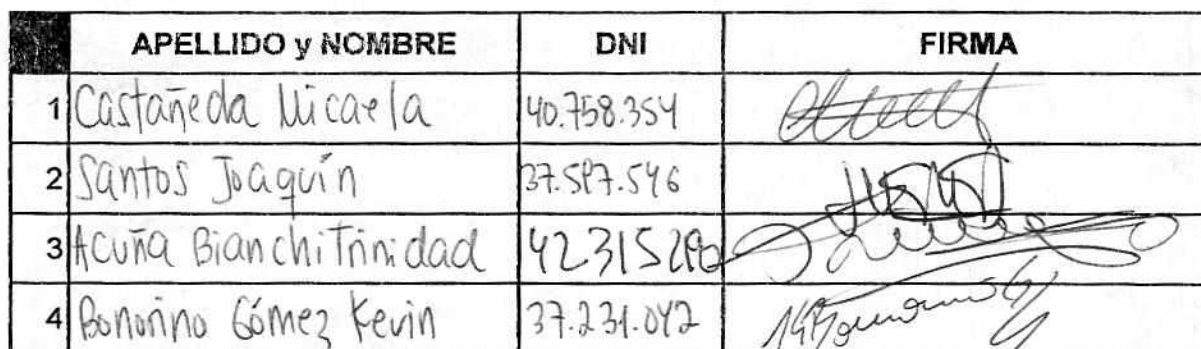 APELLIDO y NOMBRE DNI FIRMA
1 Castañeda Micaela 40.758.354
2 Santos Joaquín 37.587.546
3 Acuña Bianchi Trinidad
4 Bonorino Gómez Kevin 37.231.042